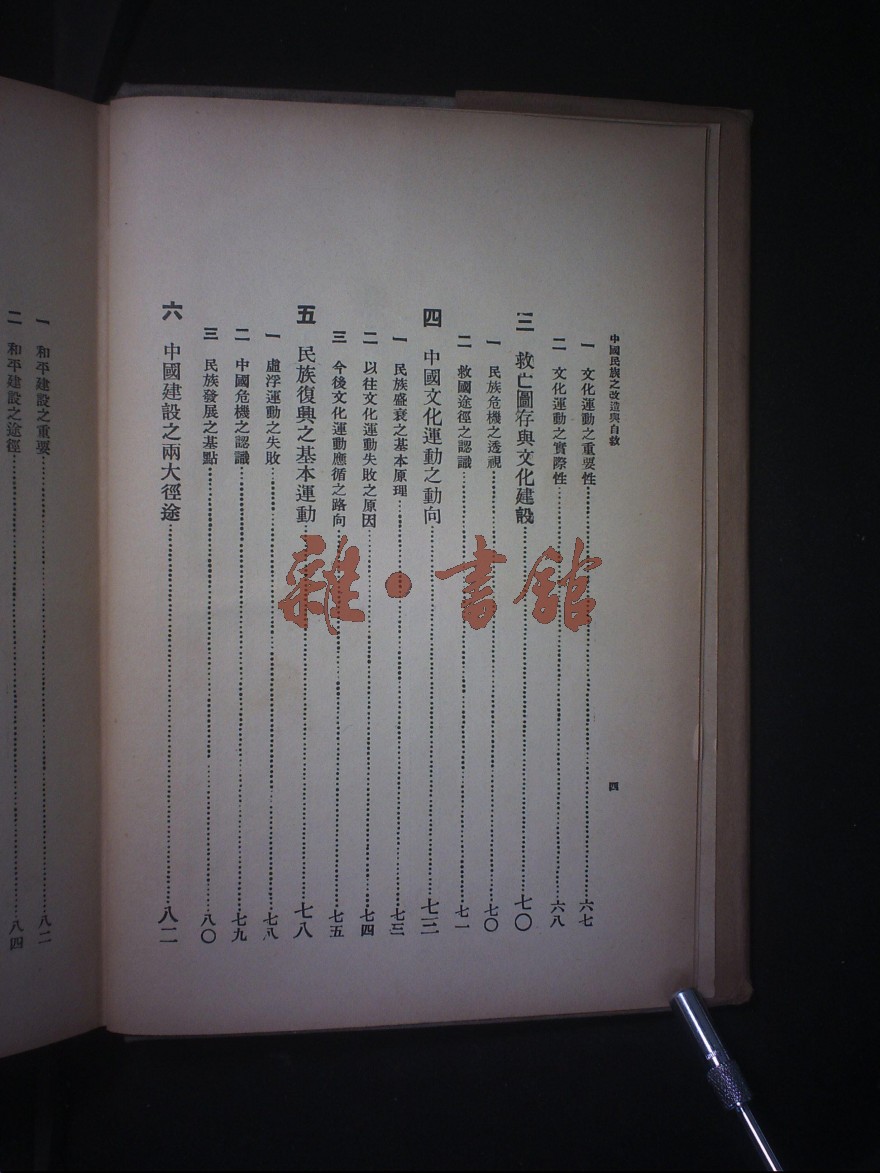 中國民族之改造與自救
四
一 文化運動之重要性⋯⋯六七
二 文化運動之實際性⋯⋯六八
三 救亡圖存與文化建設⋯⋯七〇
一 民族危機之透視⋯⋯七〇
二 救國途徑之認識⋯⋯七一
四 中國文化運動之動向⋯⋯七三
一 民族盛衰之基本原理⋯⋯七三
二 以往文化運動失敗之原因⋯⋯七四
三 今後文化運動應循之路向⋯⋯七五
五 民族復興之基本運動⋯⋯七八
一 虛浮運動之失敗⋯⋯七八
二 中國危機之認識⋯⋯七九
三 民族發展之基點⋯⋯八〇
六 中國建設之兩大徑途⋯⋯八二
一 和平建設之重要⋯⋯八二
二 和平建設之途徑⋯⋯八四
雜·書館